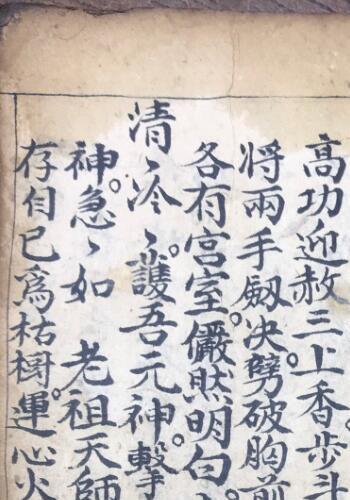 高功迎赦三上香步斗
將兩手劔決劈破胸前
各有宮室。儼然明白
清〻冷〻。護吾元神。擊
神。急〻如 老祖天師
存自已爲枯樹。運心火